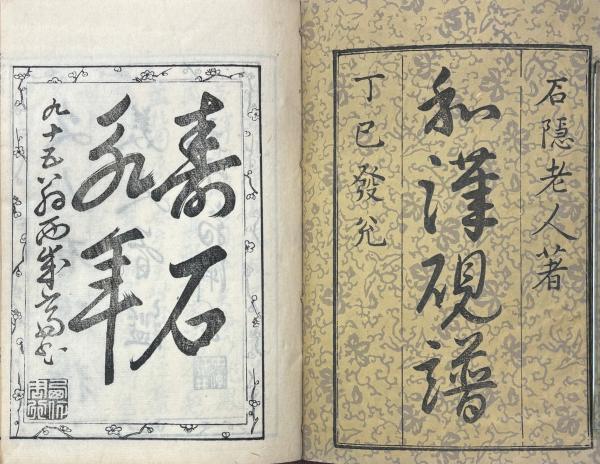 石隱老人著
和漢硯譜
丁巳發兌
壽石
永年
九十五翁